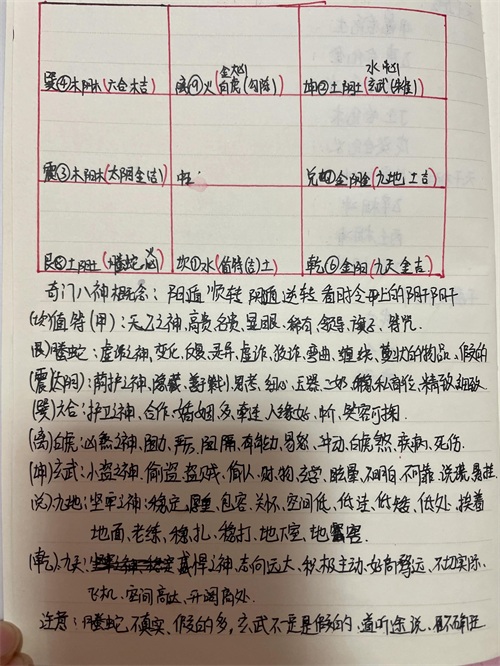 巽④木阴木(六合木吉) 离⑨火 金凶 白虎(勾陈) 坤②土阴土 水凶 玄武(朱雀)
震③木阳木(太阴金吉) 中 兑⑦金阴金(九地土吉)
艮⑧土阳土(螣蛇凶) 坎①水(值符吉土) 乾⑥金阳(九天金吉)
奇门八神概念:阳遁顺转 阴遁逆转 看时令中上的阴阡阳阡
(坎)值符(甲):天乙之神,高贵名贵、显眼、稀有、领导、
(艮)螣蛇:虚诈之神,变化、反复、灵异、虚诈、欺诈、弯曲、缠绕、蔓状的物品、假的
(震)太阴:荫护之神、隐藏、思考、细心、玉器、私、精致
(巽)六合:护卫之神、合作、婚姻、多、牵连、人缘好、中介、
(离)白虎:凶煞之神、困力、严厉、阻隔、有能力、易怒、冲动、白虎煞、疾病、死伤.
(坤)玄武:小盗之神、偷盗、盗贼、偷人、财、物、玄学、暗昧、不明白、不可靠、说谎、
(兑)九地:坚牢之神:稳定、厚重、包容、关怀、空间低、低洼、低矮、低处、挨着
地面、老练、稳扎、稳打、地下室、地窖.
(乾)九天:悍之神、志向远大、积极主动、好高骛远、不切实际、
飞机、空间高达、开阔高处.
注意:螣蛇不真实、假的多,玄武不一定是假的、道听途说、看不确定